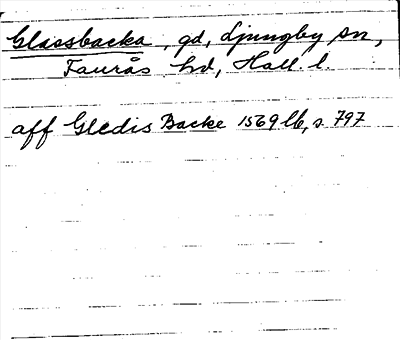 Glassbacka, gd, Ljungby sn,
Faurås hd, Hall. l.
aff Gledis Backe 1569 lb, s. 797